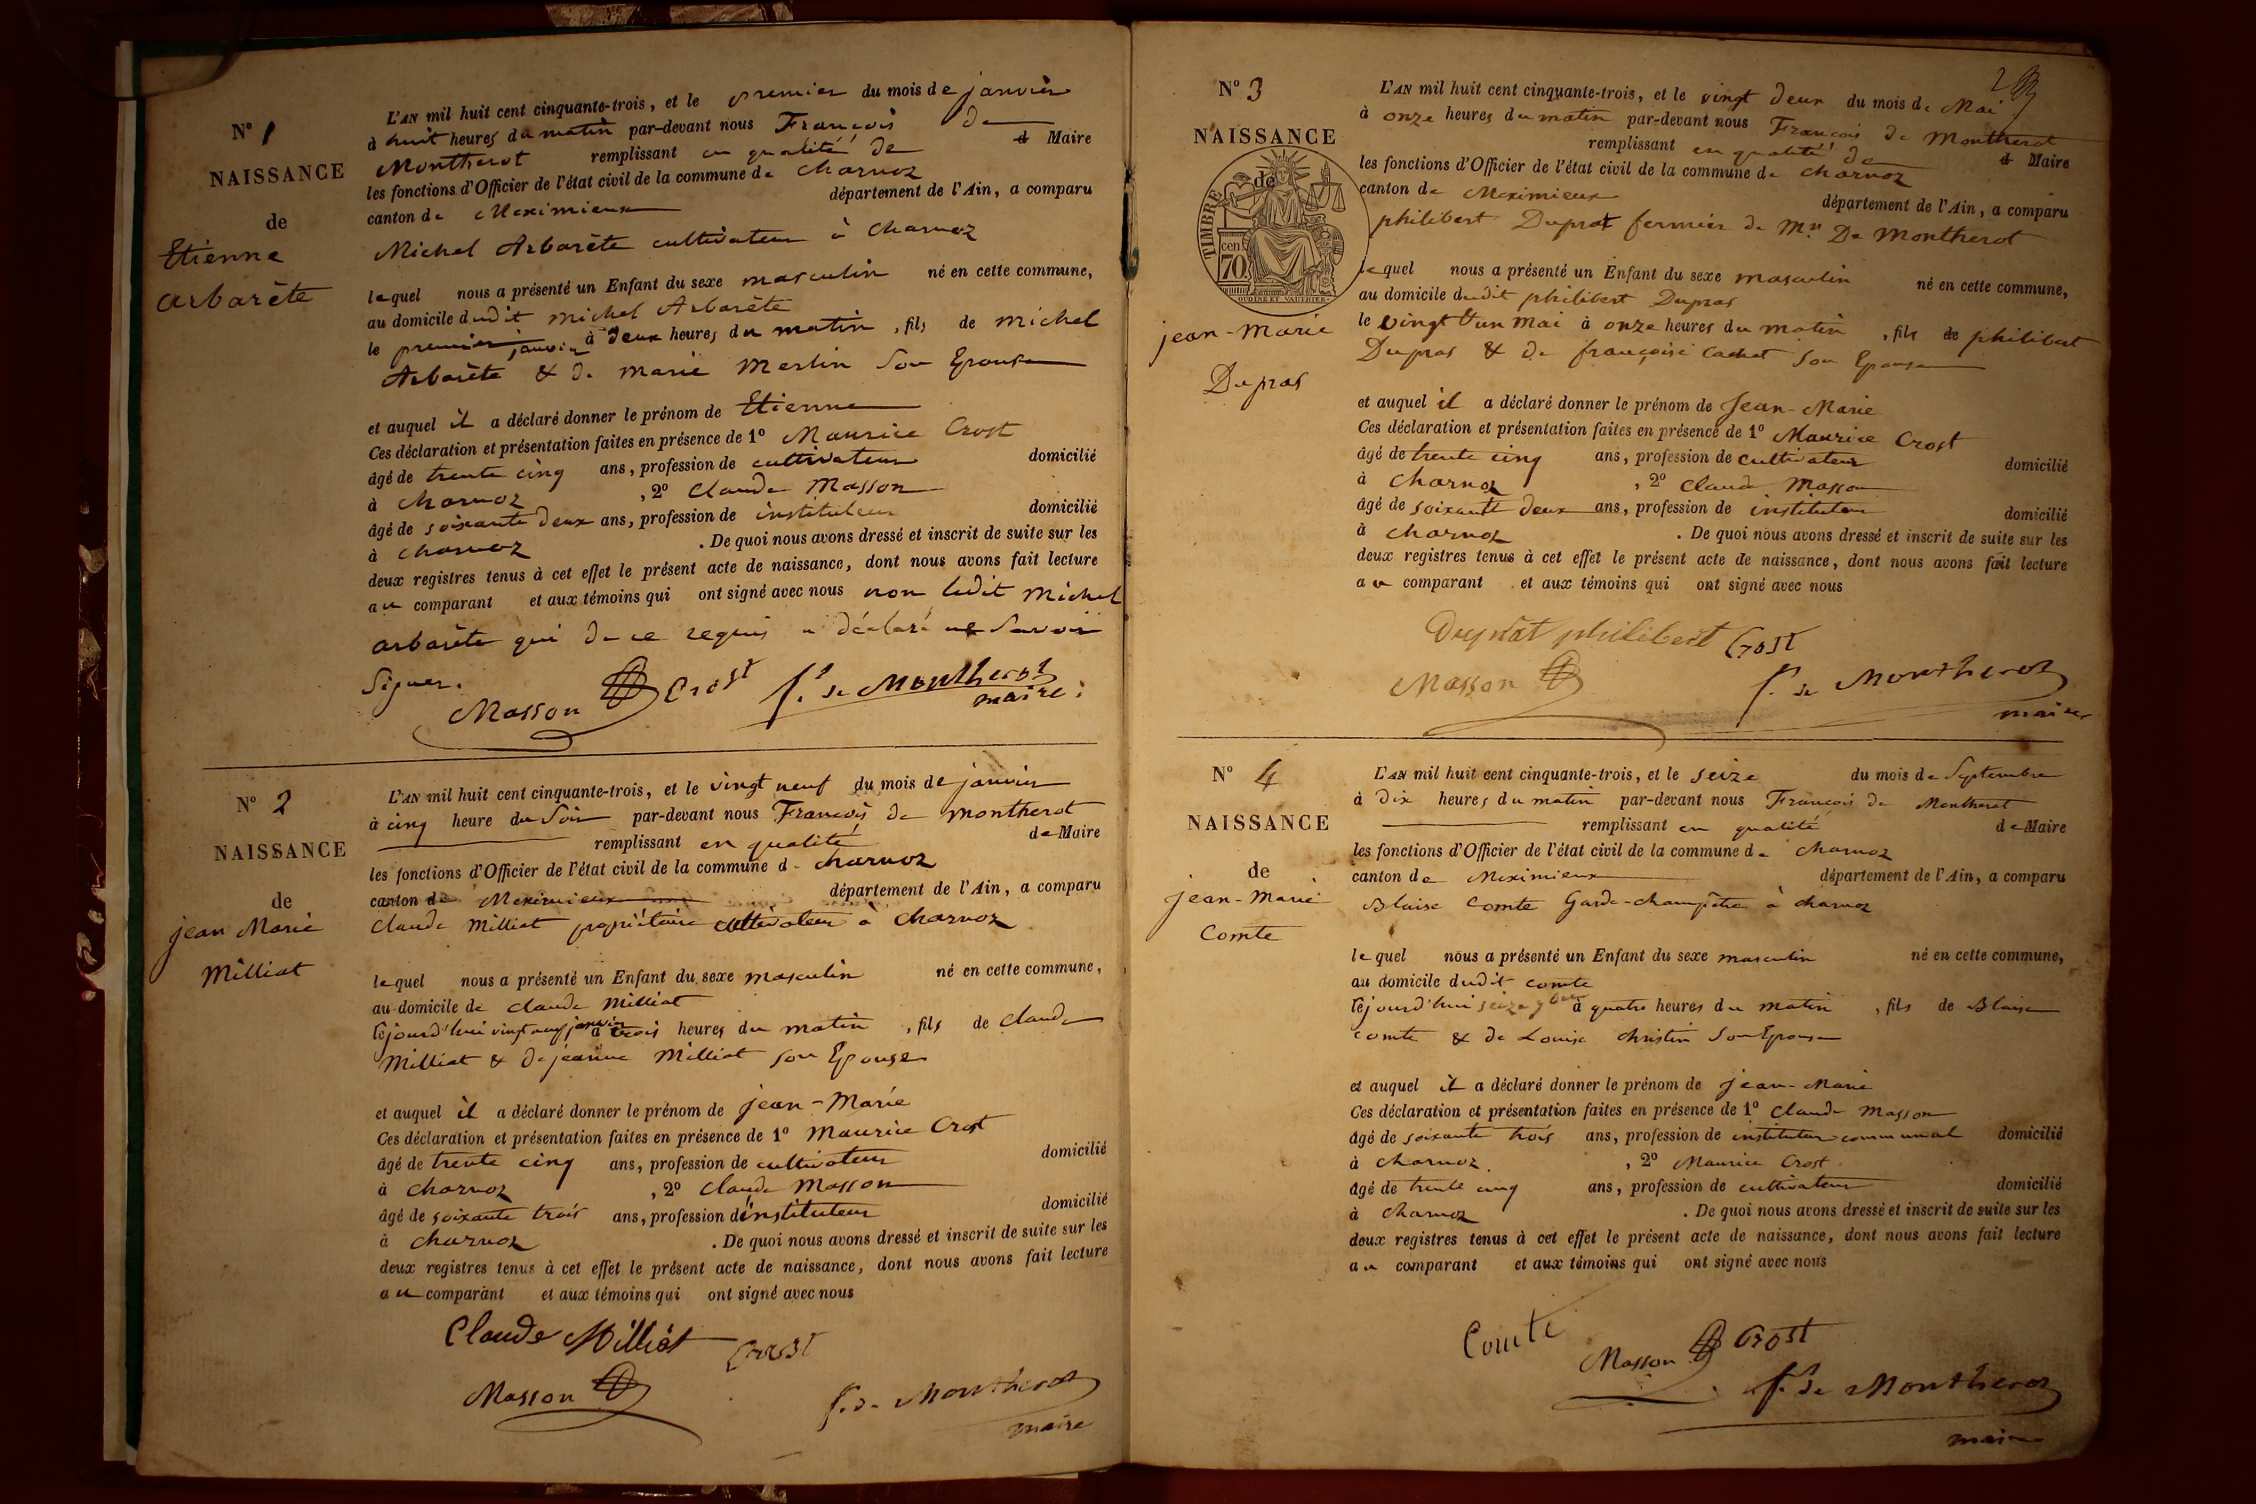 N° 1
NAISSANCE
de
Etienne
arbarète
L'AN mil huit cent cinquante-trois, et le premier du mois de janvier
à huit heures du matin par-devant nous François de
Montherot remplissant en qualité de d Maire
les fonctions d'Officier de l'état civil de la commune de charnoz
canton de Meximieux département de l'Ain, a comparu
Michel Arbarète cultivateur à charnoz
lequel nous a présenté un Enfant du sexe masculin né en cette commune,
au domicile dudit michel Arbarète
le premier janvier à deux heures du matin, fils de michel
Arbarète & de marie Merlin son Epouse
et auquel il a déclaré donner le prénom de Etienne
Ces déclaration et présentation faites en présence de 1° Maurice Crost
âgé de trente cinq ans, profession de cultivateur domicilié
à charnoz, 2° Claude Masson
âgé de soixante deux ans, profession de instituteur domicilié
à charnoz. De quoi nous avons dressé et inscrit de suite sur les
deux registres tenus à cet effet le présent acte de naissance, dont nous avons fait lecture
au comparant et aux témoins qui ont signé avec nous non ledit michel
arbarète qui de ce requis a déclaré ne savoir
signer.
Masson Crost f. de Montherot
maire
N° 2
NAISSANCE
de
jean Marie
Milliat
L'AN mil huit cent cinquante-trois, et le vingt neuf du mois de janvier
à cinq heure du soir par-devant nous François de montherot
remplissant en qualité de Maire
les fonctions d'Officier de l'état civil de la commune de charnoz
canton de Meximieux département de l'Ain, a comparu
claude Milliat propriétaire cultivateur à charnoz
lequel nous a présenté un Enfant du sexe masculin né en cette commune,
au domicile de claude Milliat
cejourd'hui vingt neuf janvier à trois heures du matin, fils de claude
Milliat & de jeanne Milliat son Epouse
et auquel il a déclaré donner le prénom de jean-Marie
Ces déclaration et présentation faites en présence de 1° Maurice Crost
âgé de trente cinq ans, profession de cultivateur domicilié
à charnoz, 2° Claude Masson
âgé de soixante trois ans, profession d'instituteur domicilié
à charnoz. De quoi nous avons dressé et inscrit de suite sur les
deux registres tenus à cet effet le présent acte de naissance, dont nous avons fait lecture
au comparant et aux témoins qui ont signé avec nous
Claude Milliat Crost
Masson f. de Montherot
maire
N° 3
NAISSANCE
de
TIMBRE
70 cen
OUDINE ET VAUTHIER
jean-Marie
Dupras
L'AN mil huit cent cinquante-trois, et le vingt deux du mois de Mai
à onze heures du matin par-devant nous François de Montherot
remplissant en qualité de d Maire
les fonctions d'Officier de l'état civil de la commune de charnoz
canton de Meximieux département de l'Ain, a comparu
philibert Duprat fermier de Mr. De Montherot
lequel nous a présenté un Enfant du sexe masculin né en cette commune,
au domicile dudit philibert Dupras
le vingt un mai à onze heures du matin, fils de philibert
Dupras & de françoise Cachet son Epouse
et auquel il a déclaré donner le prénom de Jean-Marie
Ces déclaration et présentation faites en présence de 1° Maurice Crost
âgé de trente cinq ans, profession de cultivateur domicilié
à charnoz, 2° Claude Masson
âgé de soixante deux ans, profession de instituteur domicilié
à charnoz. De quoi nous avons dressé et inscrit de suite sur les
deux registres tenus à cet effet le présent acte de naissance, dont nous avons fait lecture
au comparant et aux témoins qui ont signé avec nous
Duprat philibert Crost
Masson f. de Montherot
maire
N° 4
NAISSANCE
de
jean-Marie
Comte
L'AN mil huit cent cinquante-trois, et le seize du mois de Septembre
à dix heures du matin par-devant nous François de Montherot
remplissant en qualité de Maire
les fonctions d'Officier de l'état civil de la commune de charnoz
canton de Meximieux département de l'Ain, a comparu
Blaise Comte Garde-champêtre à charnoz
lequel nous a présenté un Enfant du sexe masculin né en cette commune,
au domicile dudit comte
cejourd'hui seize 7bre à quatre heures du matin, fils de Blaise
comte & de Louise christin son Epouse
et auquel il a déclaré donner le prénom de jean-Marie
Ces déclaration et présentation faites en présence de 1° Claude Masson
âgé de soixante trois ans, profession de instituteur communal domicilié
à charnoz, 2° Maurice Crost
âgé de trente cinq ans, profession de cultivateur domicilié
à charnoz. De quoi nous avons dressé et inscrit de suite sur les
deux registres tenus à cet effet le présent acte de naissance, dont nous avons fait lecture
au comparant et aux témoins qui ont signé avec nous
Comte
Masson Crost
f. de Montherot
maire